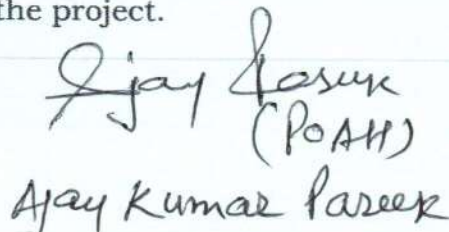 the project.
Ajay Pareek
(POAH)
Ajay Kumar Pareek